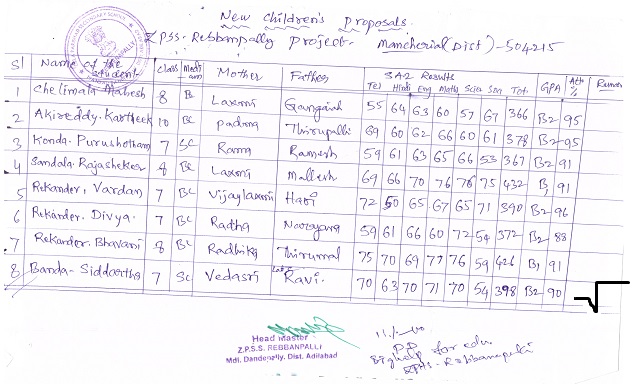 New Children's Proposals.
Z.P.S.S- Rebbanpally Project. Mancherial (Dist) - 504215
SA2 Results
Sl Name of the student Class Mother Father Tel Hindi Eng Math Scie Soa Tot GPA Att %
1 Chelimala Mahesh 8 BC Laxmi 55 64 63 60 57 67 366 B2 95
2 Akireddy. Kartheek 10 BC Padma Thirupathi 69 60 62 66 60 61 378 B2 95
3 Konda. Purushotham 7 SC Rama Ramesh 59 61 63 65 66 53 367 B2 91
4 Sandala. Rajasheker 8 BC Laxmi Mallesh 69 66 70 76 76 75 432 B1 91
5 Rekander. Vardan 7 BC Vijaylaxmi Hari 72 50 65 67 65 71 390 B2 96
6 Rekander. Divya. 7 BC Radha Narayana 59 61 66 60 72 54 372 B2 88
7 Rekander. Bhavani 8 BC Radhika Thirumal 75 70 69 77 76 59 426 B1 91
8 Banda. Siddaartha 7 SC Vedasri Late Ravi. 70 63 70 71 70 54 398 B2 90
Head Master
Z.P.S.S. REBBANPALLI
Mdl. Dandepally, Dist. Adilabad
P.D
for edu.
ZPHS - Rebbanapalli